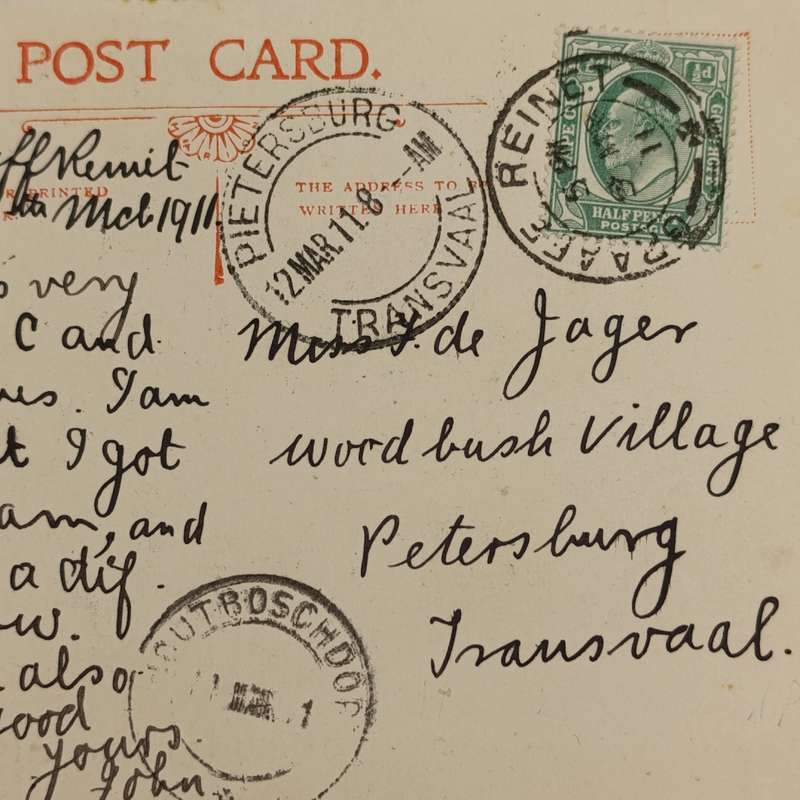 POST CARD.
Reinet
Mch 1911
PRINTED
THE ADDRESS TO
WRITTEN HERE
PIETERSBURG
12 MAR.11.8 -- AM
TRANSVAAL
REINET
½d
HALFPENNY
POSTAGE
very
C and
I am
I got
am, and
a dif.
also
good
yours
John
Miss de Jager
woodbush Village
Petersburg
Transvaal.
HOUTBOSCHDORP